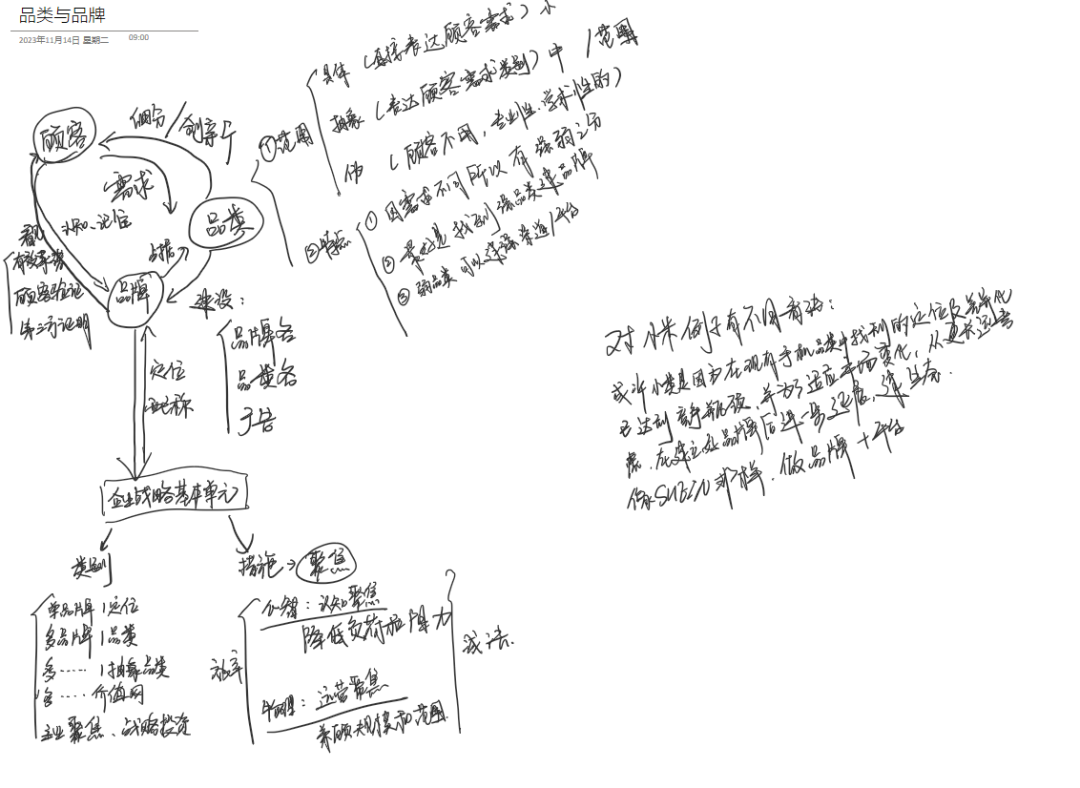 品类与品牌
2023年11月14日 星期二 09:00
顾客
细分/创新
需求
品类
认知、记住
占据
品牌
看见
顾客验证
第三方证明
建设：
品牌名
品类名
广告
定位
配称
①范围
具体（直接表达顾客需求）小
抽象（表达顾客需求类别）中 /范围
伪（顾客不用，专业性、学术性的）
②特点
① 因需求不同所以有强弱之分
② 最好是找到强品类建品牌
③ 弱品类可以建渠道/平台
企业战略基本单元
类别
单品牌 1定位
多品牌 1品类
多…… 1抽象品类
多…… 价值网
主业聚焦、战略投资
措施→聚焦
心智：认知聚焦
运营聚焦
兼顾规模和范围
减法
对小米例子有不同看法：
或许小米是因为在现有手机品类中找到的定位及差异化
已达到竞争瓶颈，并为了适应市场变化，从更长远考
虑，在建立起品牌后进一步
像SHEIN那样，做品牌+平台